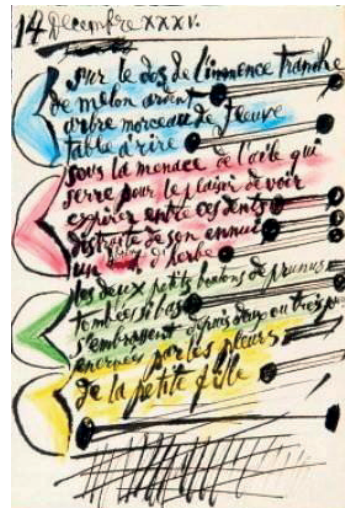 14 Decembre XXXV.
sur le dos de l'immence tranche
de melon ardent
arbre morceau de fleuve
table à rire
sous la menace de l'aile qui
serre pour le plaisir de voir
expirer entre ces dents
distraite de son ennui
un d'herbe
les deux petits boutons de prunus
tombés si bas
s'embrassent depuis deux ou trois
énervées par les pleurs
de la petite fille